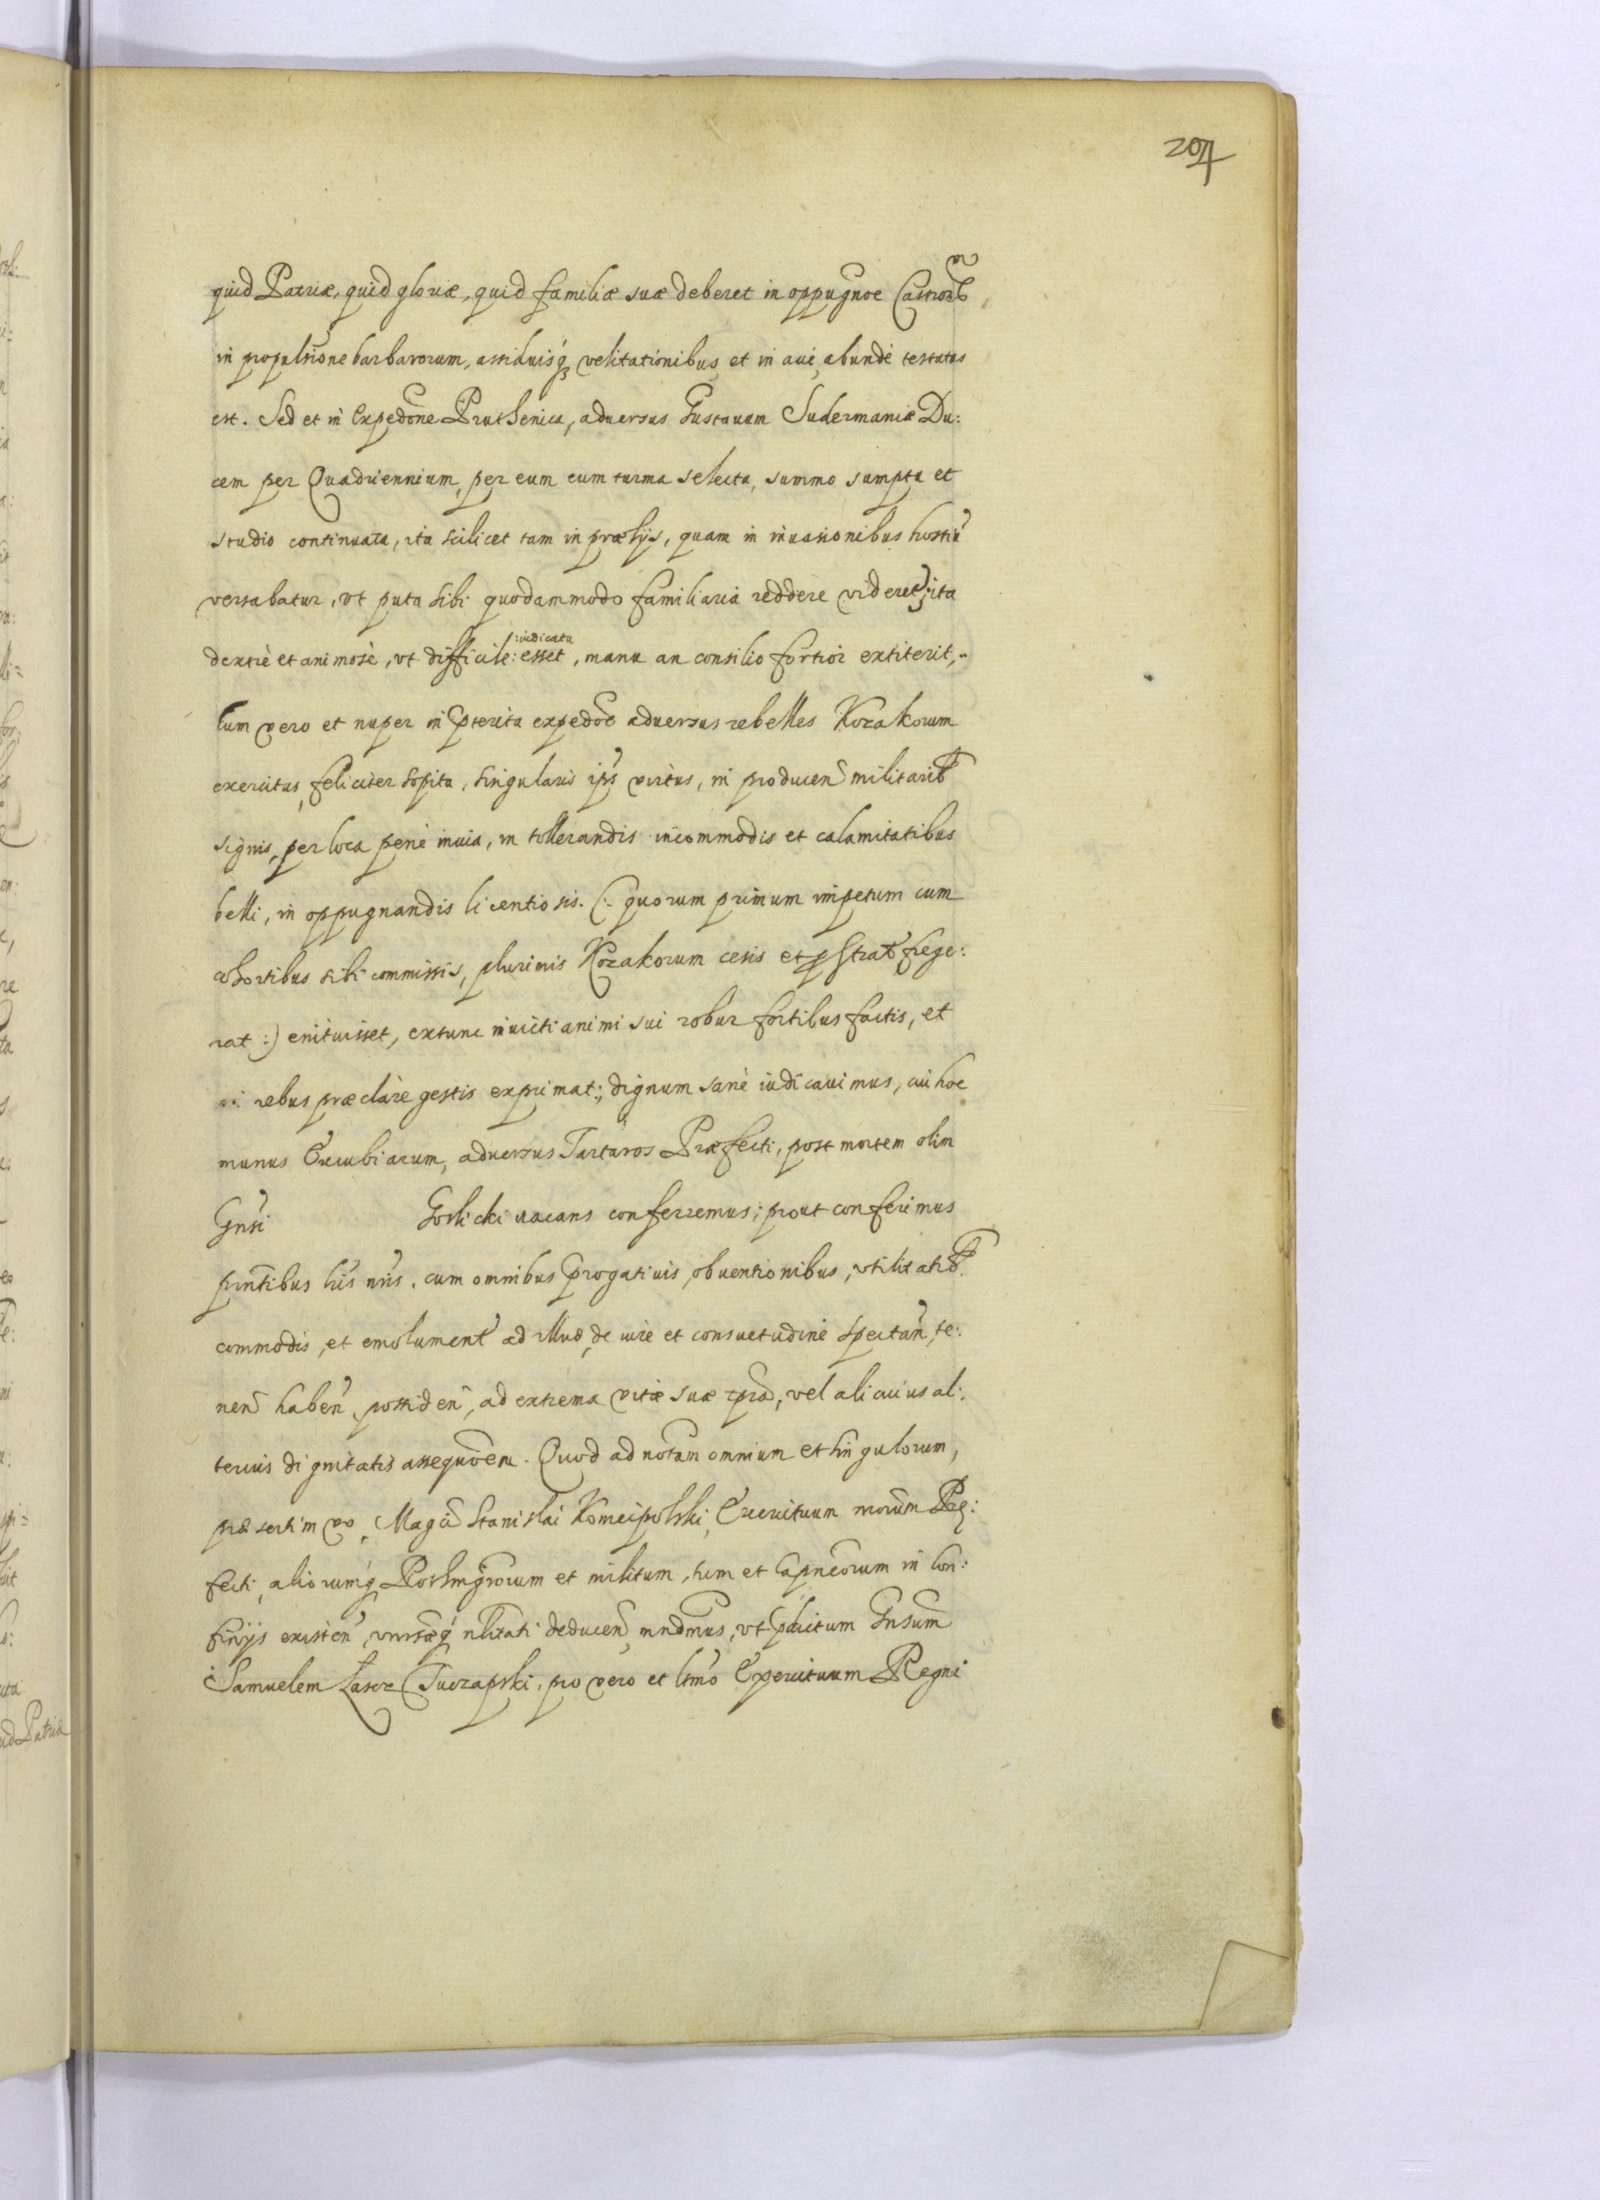 204
quid Patriæ, quid gloriæ, quid familiæ suæ deberet in oppugnoe Castror
in propulsione barbarorum, assiduisq velitationibus et in acie, abundè testatus
est. Sed et in Expedone Pruthenica, adversus Gustauum Sudermaniæ Du:
cem per Quadriennium, per eum cum turma selecta, summo sumptu et
studio continuata, ita scilicet tam in prælijs, quam in inuasionibus hostiu
versabatur, vt puta sibi quodammodo familiaria reddere videret; ita
dextrè et animosè, vt difficile :iudicatu: esset, manu an consilio fortior extiterit,
tum vero et nuper in pterita expedoe adversus rebelles Kozakorum
exercitus, feliciter sopita, singularis ips virtus, in producen militarib
signis, per loca penè inuia, in tollerandis incommodis et calamitatibus
belli, in oppugnandis licentiosis. (: quorum primum impetum cum
cohortibus sibi commissis, plurimis Kozakorum cesis et pstrat frege:
rat :) enituisset, extunc inuicti animi sui robur fortibus factis, et
rebus præclàre gestis exprimat; dignum sanè iudicauimus, cui hoc
munus Excubiarum, adversus Tartaros Præfecti, post mortem olim
Gnsi Gorlicki uacans conferremus; prout conferimus
pntibus lris nris, cum omnibus progatiuis, obuentionibus, vtilitatib
commodis, et emolument ad illud de iure et consuetudine spectan, te:
nen haben possiden, ad extrema vitæ suæ tpra, vel alicuius al:
terius dignitatis assequoem. Quod ad notam omnium et singulorum,
præsertim vo, Magci Stanislai Koniecpolski, Exercituum nrorum Præ:
fecti, aliorumq Rothmgrorum et militum, tum et Capneorum in Con:
finijs existen, vnirsæq nlitati deducen, mndmus, vt pdictum Gnsum
Samuelem Łascz Tuczapski, pro vero et ltmo Exercituum Regni